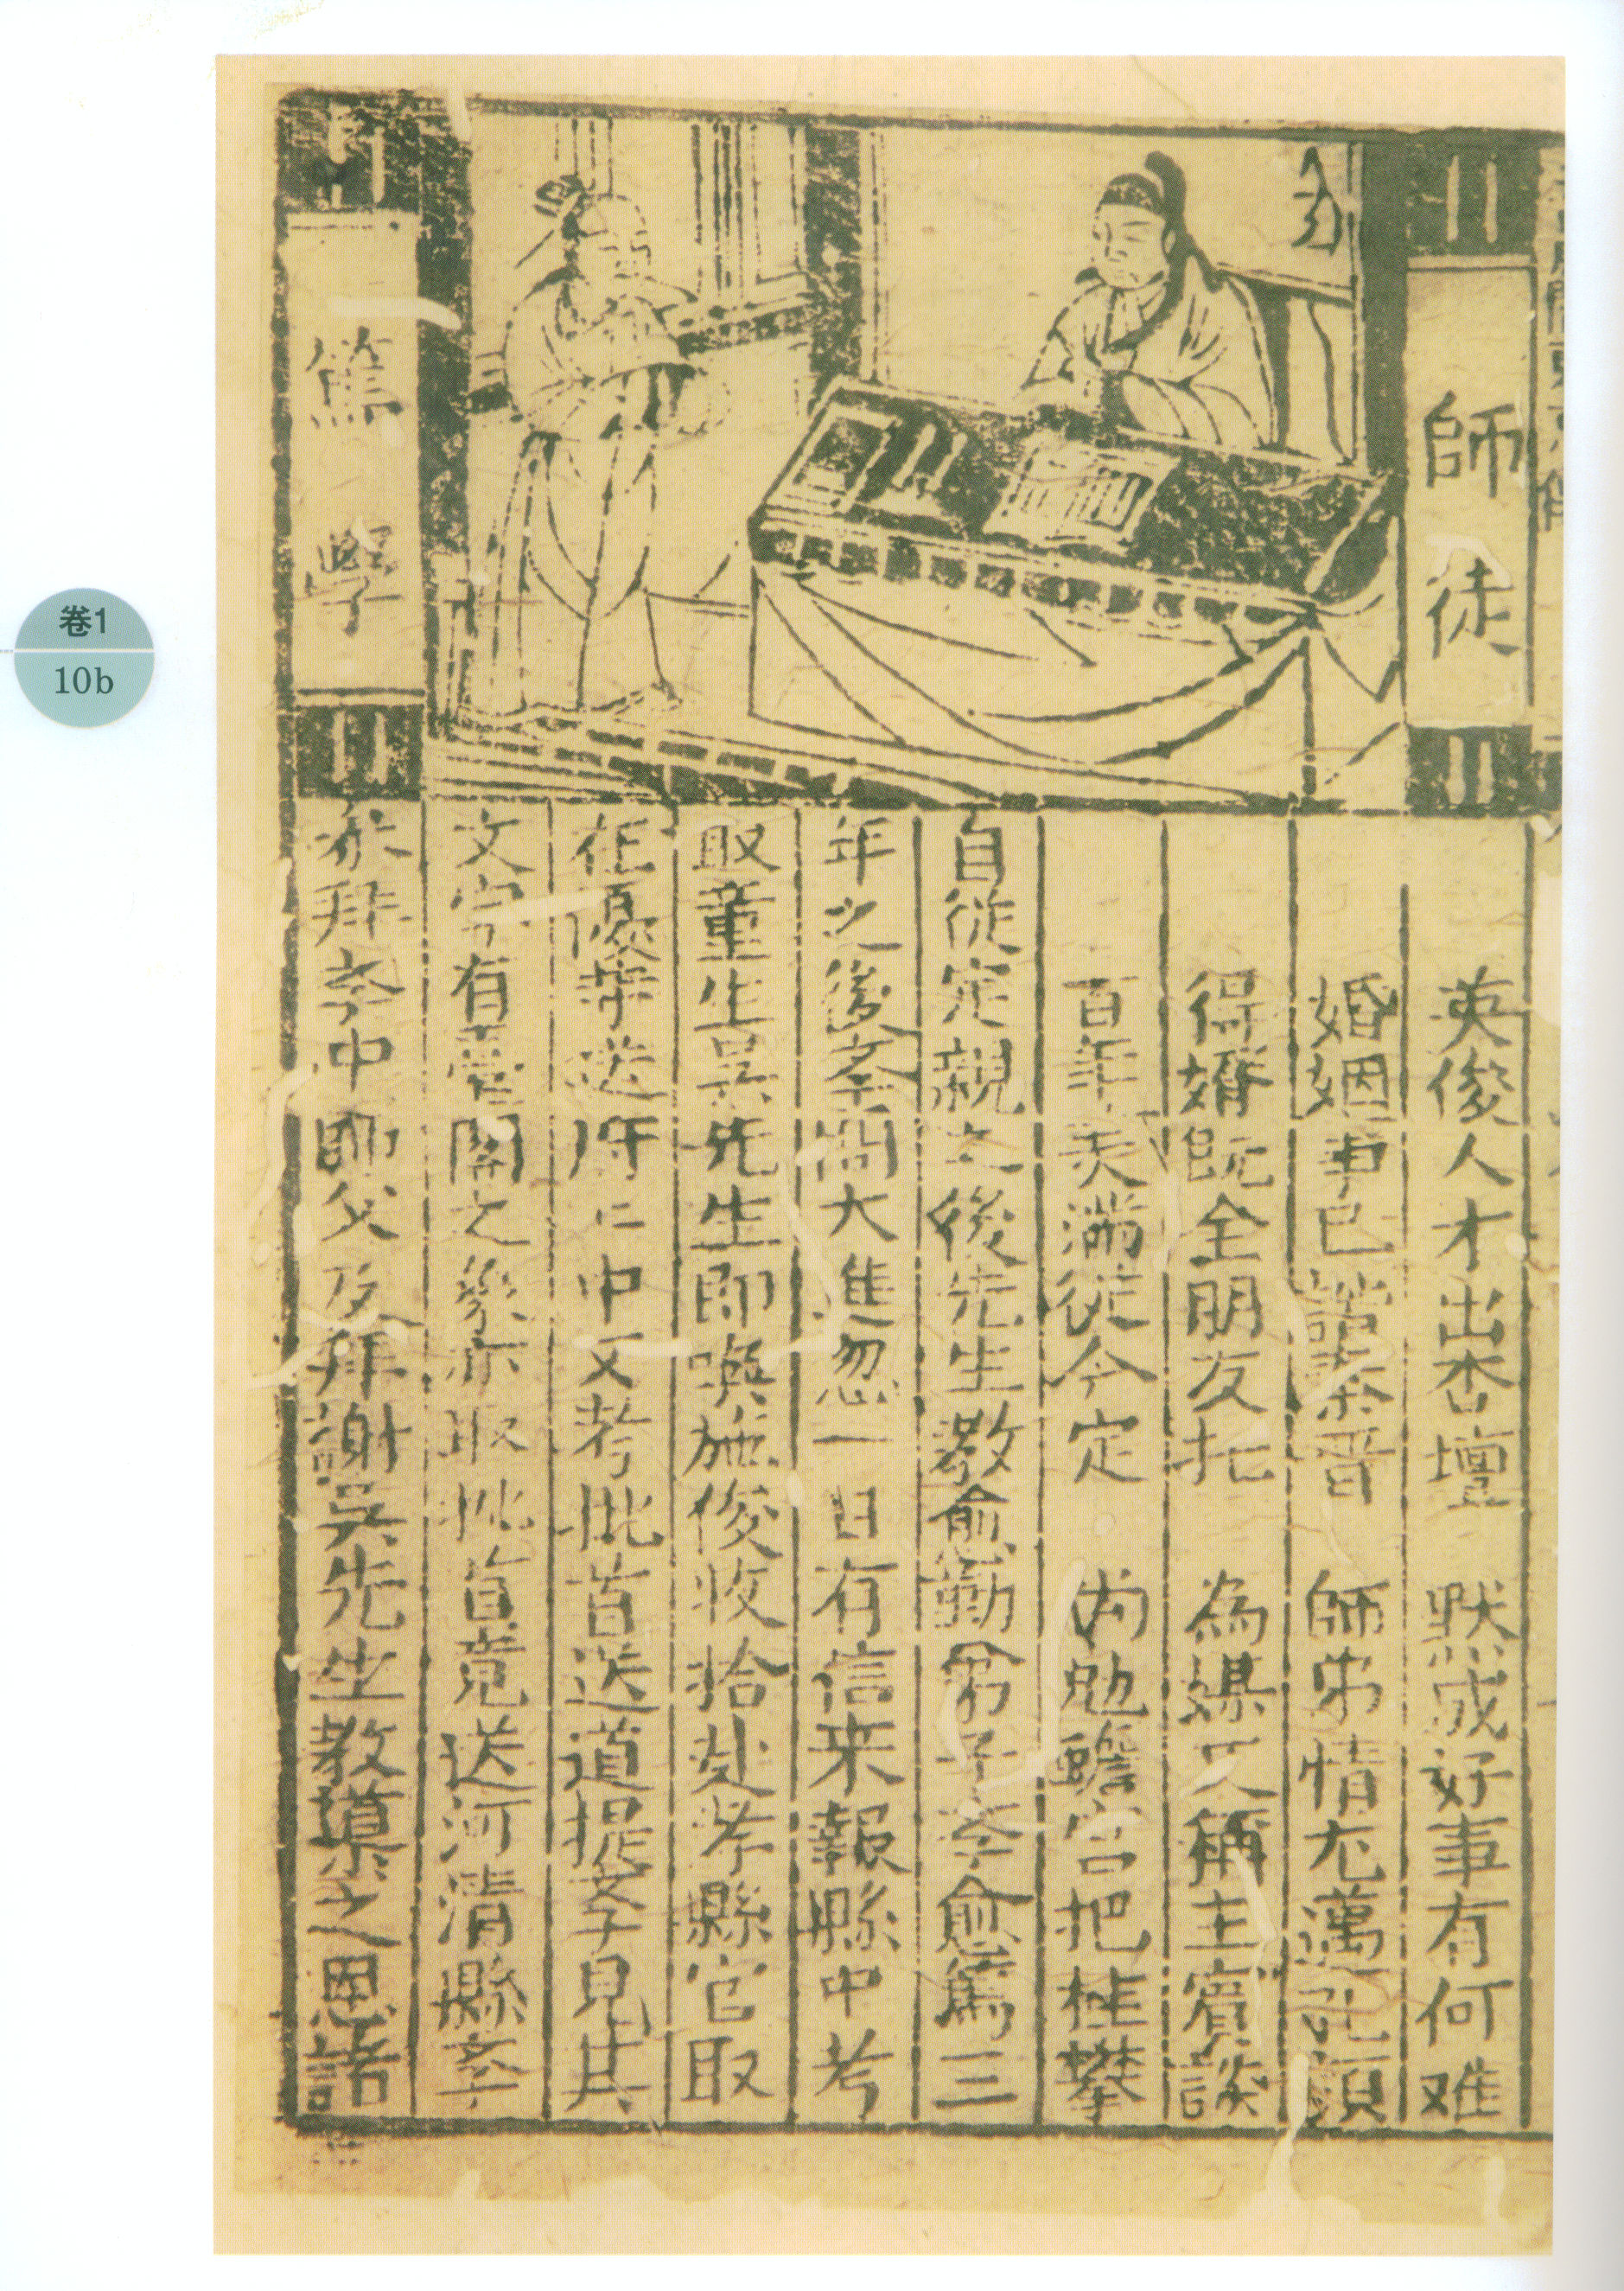 師徒
篤學
英俊人才出杏壇 默成好事有何难
婚姻事已諧秦晋 師弟情尤邁孔顔
得婿既全朋友托 為媒又称主賓談
百年美滿從今定 尚勉蟾宫把桂攀
自從定親之後先生教愈勤弟子孝愈篤三
年之後孝問大進忽一日有信来報縣中考
取童生吳先生即喚施俊收拾赴考縣官取
在優等送府仁中又考批首送道提孝見其
文字有臺閣之象亦取批首竟送河清縣孝
参拜孝中師父及拜謝吳先生教導之恩語
卷1
10b